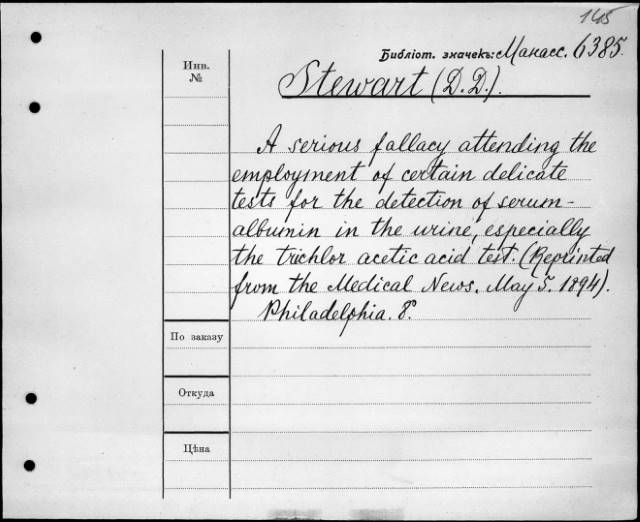 145
Библіот. значекъ: Манасс. 6385.
Инв.
№
Stewart (D. D.).
A serious fallacy attending the
employment of certain delicate
tests for the detection of serum-
albumin in the urine, especially
the trichlor acetic acid test. (Reprinted
from the Medical News. May 5. 1894).
Philadelphia. 8°.
По заказу
Откуда
Цѣна